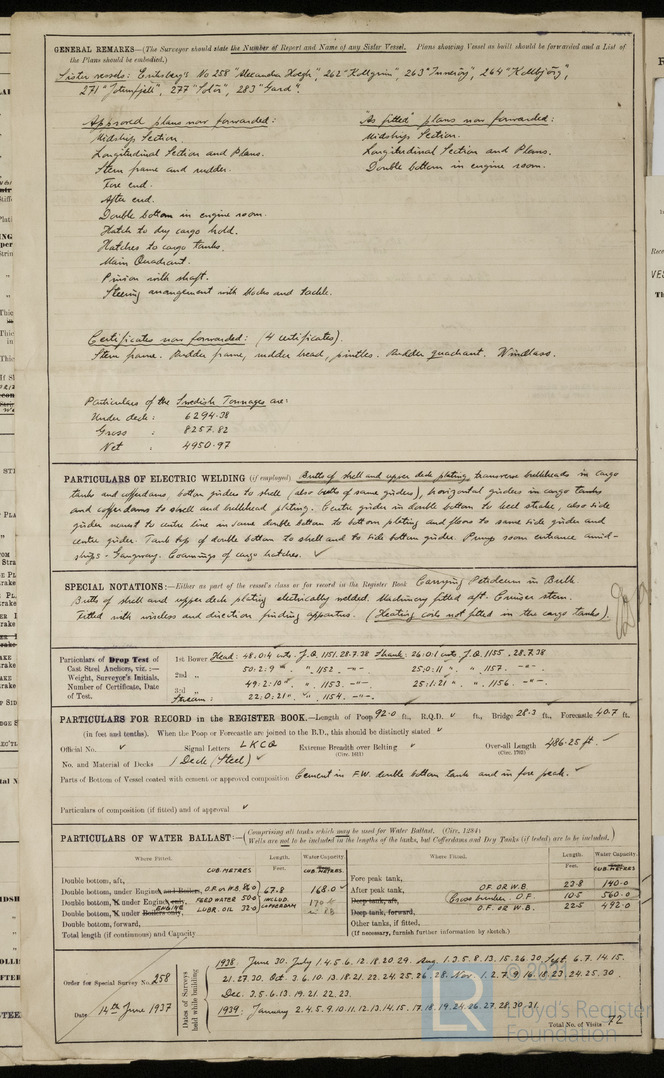 GENERAL REMARKS—(The Surveyor should state the Number of Report and Name of any Sister Vessel. Plans showing Vessel as built should be forwarded and a List of
the Plans should be embodied.)
Sister vessels: Eriksberg's No 258 "Alexandra Hoegh", 262 "Kollgrim", 263 "Inneröy", 264 "Kollbjörg",
271 "Jotunfjell", 277 "Solör", 283 "Gard".
Approved plans now forwarded:
Midship Section.
Longitudinal Section and Plans.
Stern frame and rudder.
Fore end.
After end.
Double bottom in engine room.
Hatch to dry cargo hold.
Hatches to cargo tanks.
Main Quadrant.
Pinion with shaft.
Steering arrangement with blocks and tackle.
"As fitted" plans now forwarded:
Midship Section.
Longitudinal Section and Plans.
Double bottom in engine room.
Certificates now forwarded: (4 certificates).
Stern frame. Rudder frame, rudder head, pintles. Rudder quadrant. Windlass.
Particulars of the Swedish Tonnages are:
Under deck: 6294.38
Gross : 8257.82
Net : 4950.97
PARTICULARS OF ELECTRIC WELDING (if employed) Butts of shell and upper deck plating, transverse bulkheads in cargo
tanks and cofferdams, bottom girders to shell (also butts of same girders), horizontal girders in cargo tanks
and cofferdams to shell and bulkhead plating. Centre girder in double bottom to keel strake, also side
girder nearest to centre line in same double bottom to bottom plating and floors to same side girder and
centre girder. Tank top of double bottom to shell and to side bottom girder. Pump room entrance amid-
ships - Gangway. Coamings of cargo hatches. ✓
SPECIAL NOTATIONS:—Either as part of the vessel's class or for record in the Register Book Carrying Petroleum in Bulk
Butts of shell and upper deck plating electrically welded. Machinery fitted aft. Cruiser stern.
Fitted with wireless and direction finding apparatus. (Heating coils not fitted in the cargo tanks).
Particulars of Drop Test of
Cast Steel Anchors, viz.:—
Weight, Surveyor's Initials,
Number of Certificate, Date
of Test.
1st Bower Head: 48.0.4 cwts. J.Q. 1151. 28.7.38 Shank: 26.0.1 cwts. J.Q. 1155. 28.7.38
2nd „ 50.2.9 " . " . 1152. -"- 25.0.11 " . " . 1157. -"-
3rd „ 49.2.10 " . " . 1153. -"- 25.1.21 " . " . 1156. -"-
Stream: 22.0.21 " . " . 1154. -"-
PARTICULARS FOR RECORD in the REGISTER BOOK.—Length of Poop 92.0 ft., R.Q.D. ✓ ft., Bridge 28.3 ft., Forecastle 40.7 ft.
(in feet and tenths). When the Poop or Forecastle are joined to the B.D., this should be distinctly stated ✓
Official No. ✓ Signal Letters LKCQ Extreme Breadth over Belting ✓ Over-all Length 486.25 ft.
(Circ. 1611) (Circ. 1703)
No. and Material of Decks 1 Deck (Steel) ✓
Parts of Bottom of Vessel coated with cement or approved composition Cement in F.W. double bottom tank and in fore peak.
Particulars of composition (if fitted) and of approval ✓
PARTICULARS OF WATER BALLAST:—(Comprising all tanks which may be used for Water Ballast. (Circ. 1284)
Wells are not to be included in the lengths of the tanks, but Cofferdams and Dry Tanks (if tested) are to be included.)
Where Fitted. Length. Water Capacity. Where Fitted. Length. Water Capacity.
CUB. METRES Feet. CUB. METRES Feet. CUB. METRES
Double bottom, aft,
Double bottom, under Engines and Boilers, O.F. OR W.B. 67.8 168.0
Double bottom, under Engines only, FEED WATER 50.0 INCLUD. COFFERDAM
Double bottom, under Boilers only, ENGINE LUBR. OIL 32.0
Double bottom, forward,
Total length (if continuous) and Capacity
Fore peak tank,
After peak tank, O.F. OR W.B. 23.8 140.0
Deep tank, aft, Cross bunker. O.F. 10.5 560.0
Deep tank, forward, O.F. OR W.B. 22.5 492.0
Other tanks, if fitted,
(If necessary, furnish further information by sketch.)
Order for Special Survey No. 258
Date 14th June 1937
Dates of Surveys
held while building
1938. June 30. July 1.4.5.6.12.18.20.29. Aug. 1.3.5.8.13.15.26.30. Sept. 6.7.14.15.
21.27.30. Oct. 3.6.10.13.18.21.22.24.25.26.28. Nov. 1.2.7.9.16.18.23.24.25.30.
Dec. 3.5.6.13.19.21.22.23.
1939. January 2.4.5.9.10.11.12.13.14.15.17.18.19.24.26.27.28.30.31.
Total No. of Visits 72
© 20
Lloyd's Register
Foundation